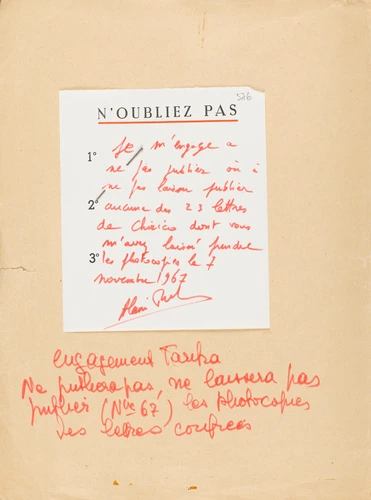 526
N'OUBLIEZ PAS
1° Je m'engage a
ne pas publier ou à
ne pas laisser publier
2° aucune des 23 lettres
de Chirico dont vous
m'avez laissé prendre
3° les photocopies le 7
novembre 1967
Alain
engagement Tarika
Ne publiera pas, ne laissera pas
publier (Nov 67) les photocopies
des lettres confiées